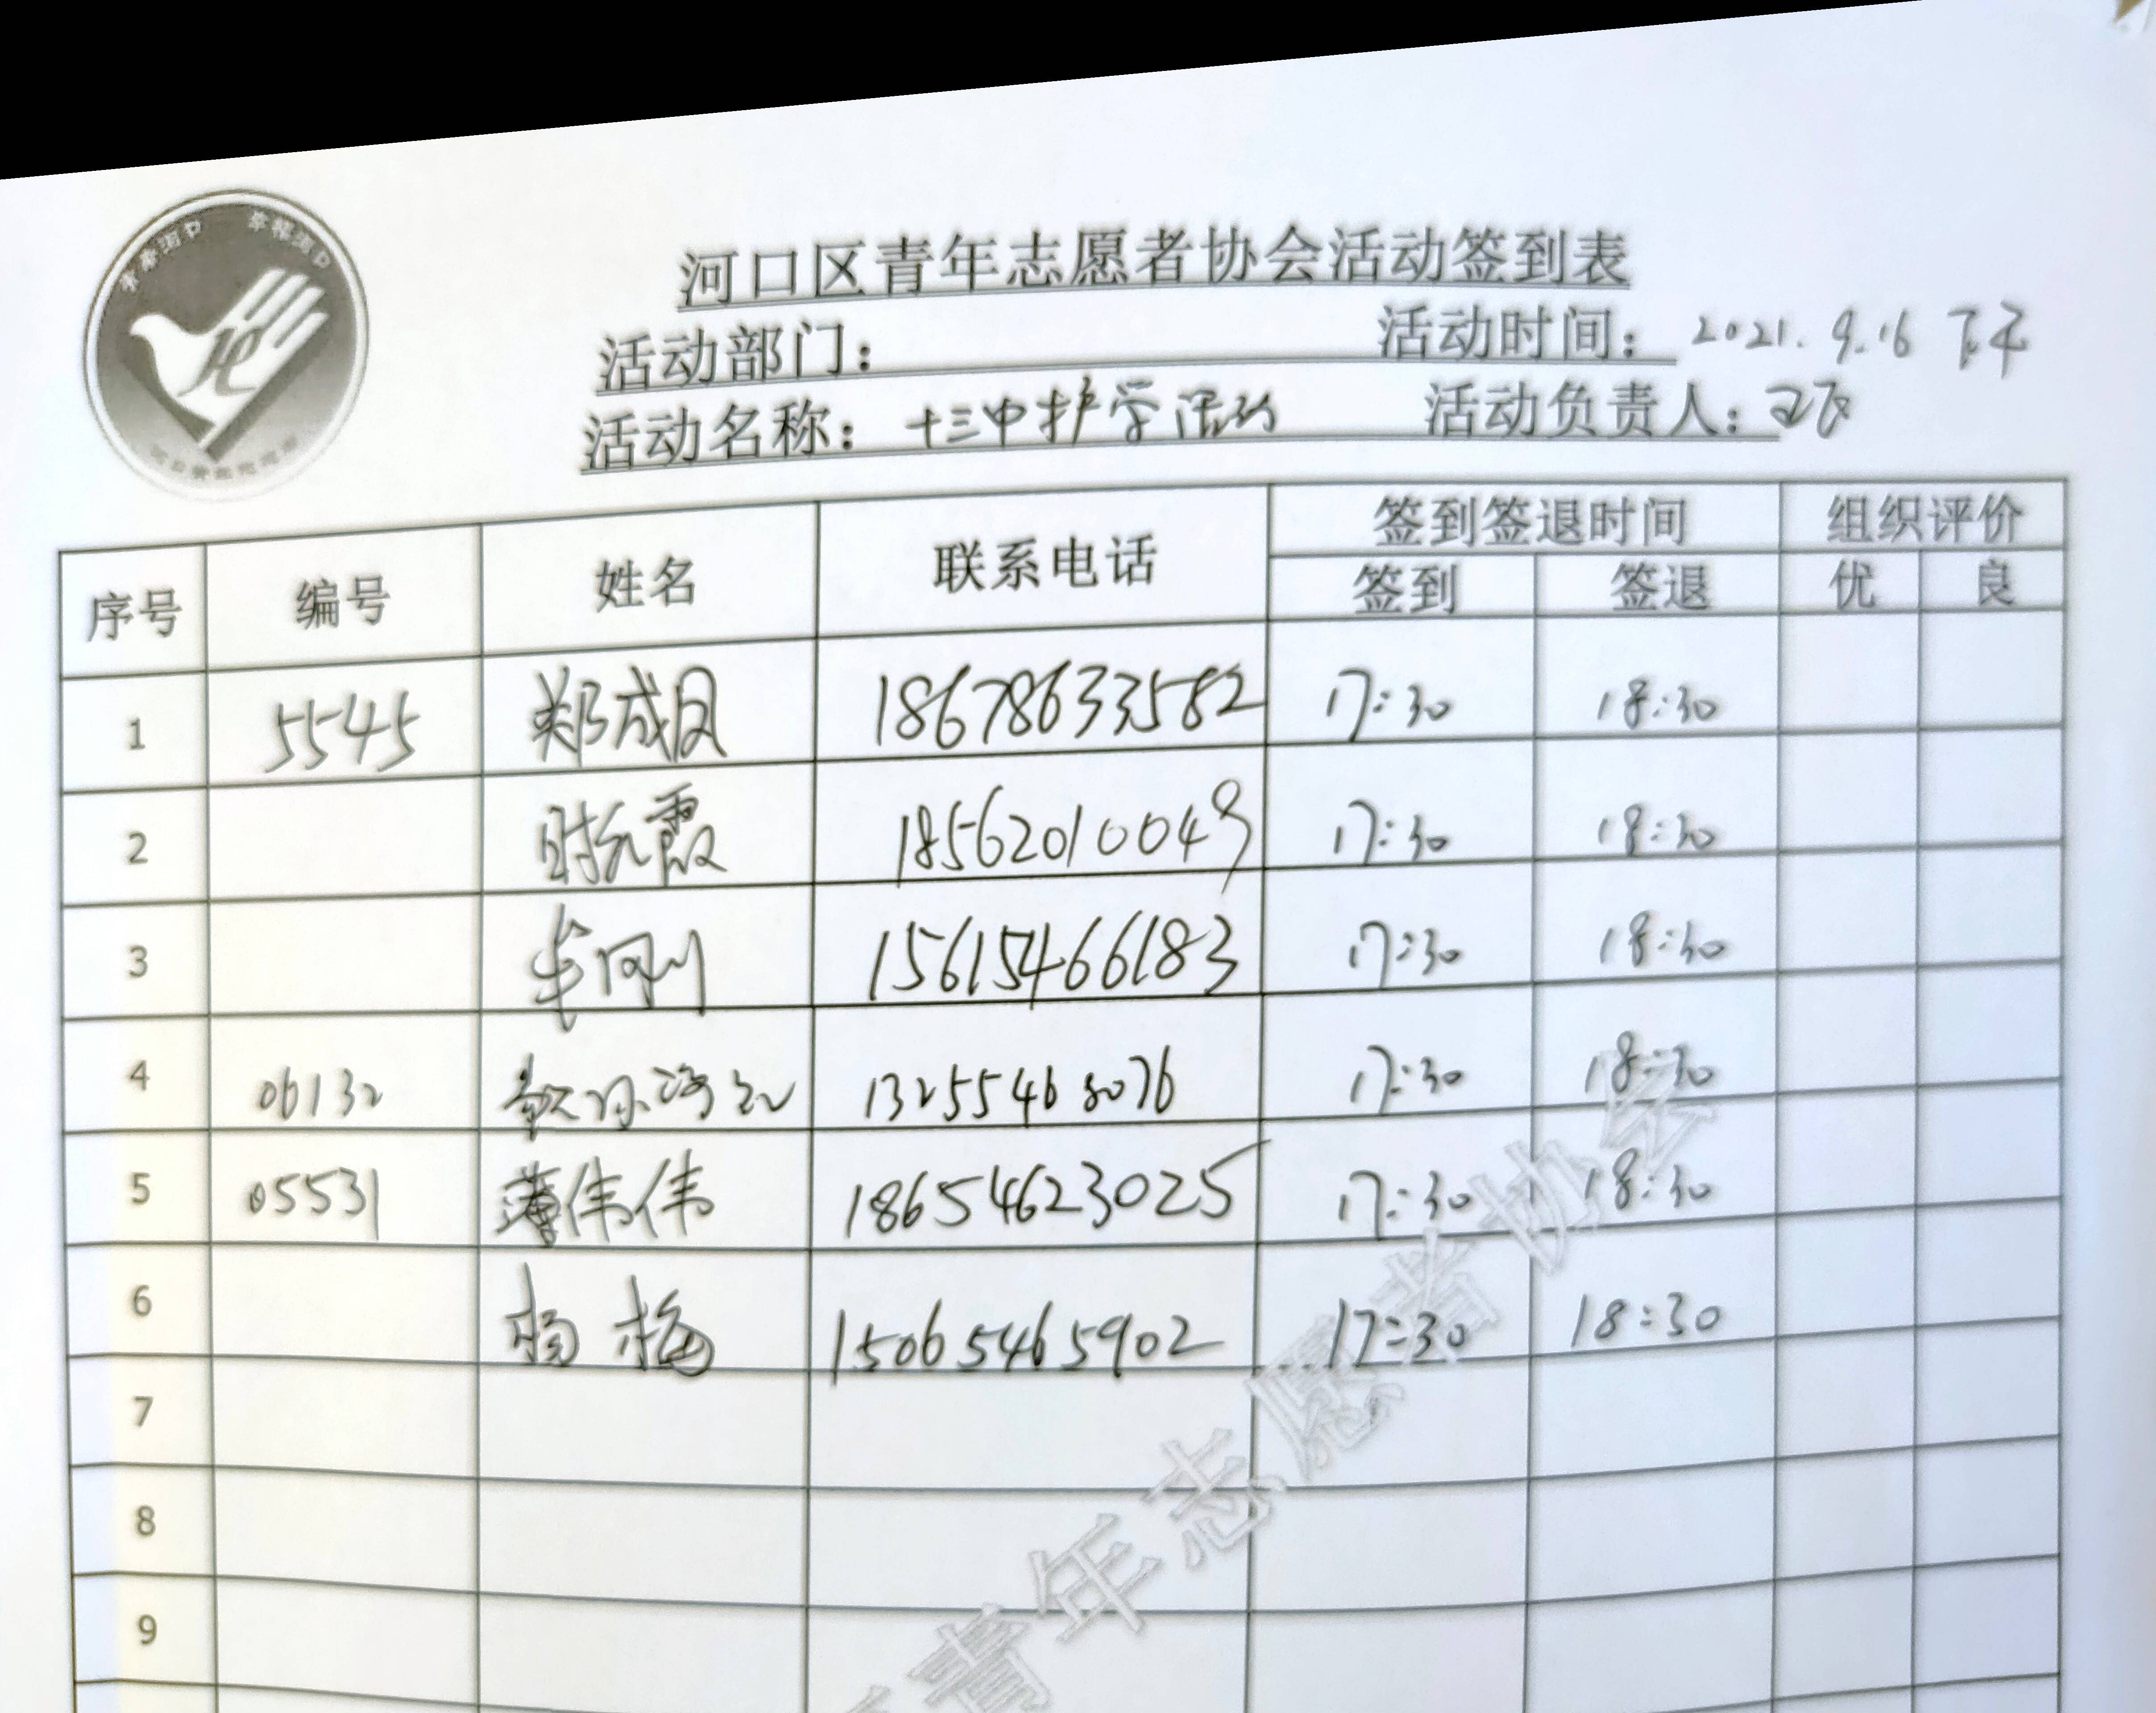 青春河口 幸福河口
HC
河口区青年志愿者协会活动签到表
活动部门： 活动时间：2021.9.16 下午
活动名称：十三中护学活动 活动负责人：王飞
序号 编号 姓名 联系电话 签到签退时间 组织评价
签到 签退 优 良
1 5545 郑成月 18678633582 17:30 18:30
2 18562010049 17:30 18:30
3 牟刚 15615466183 17:30 18:30
4 06132 13255468076 17:30 18:30
5 05531 薄伟伟 18654623025 17:30 18:30
6 杨梅 15065465902 17:30 18:30
7
8
9
青年志愿者协会